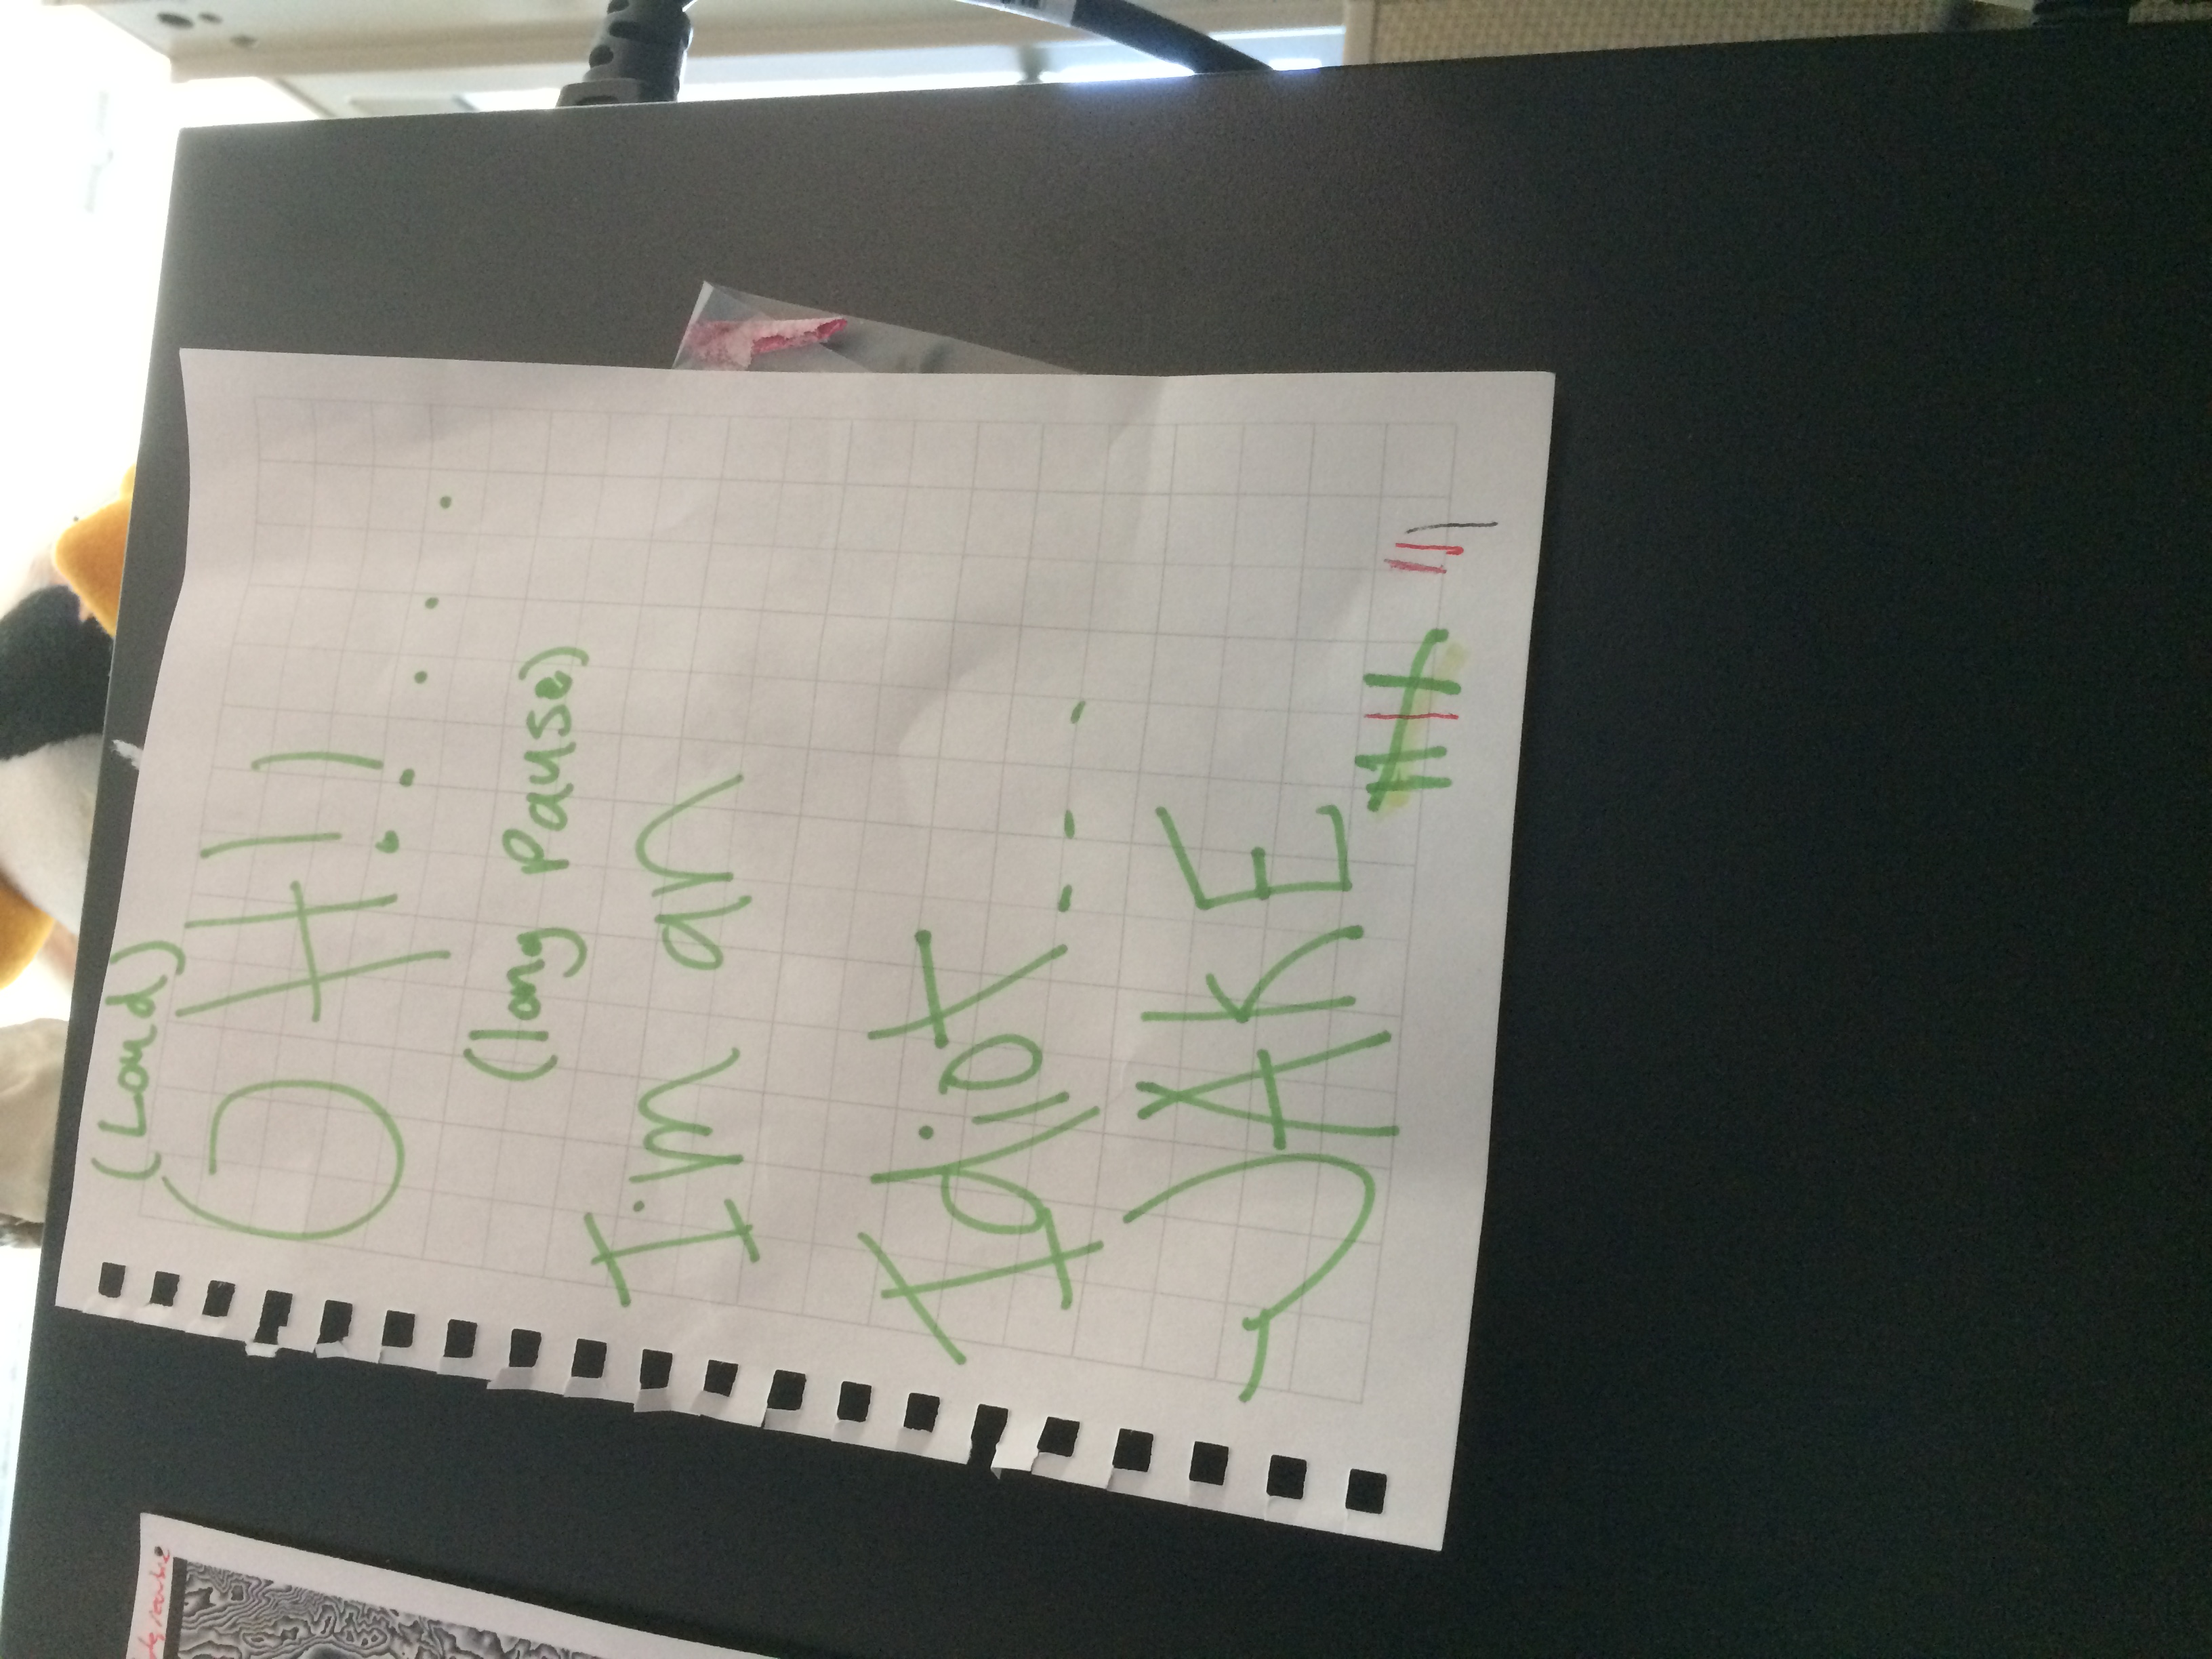 (Loud)
OH!! . . .
(long Pause)
I'm an
Idiot...
JAKE